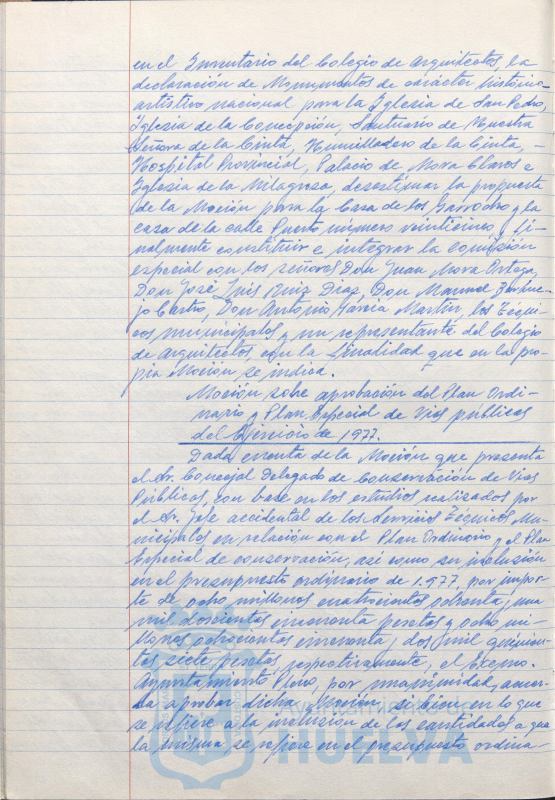 en el Inventario del Colegio de Arquitectos, la
declaración de Monumentos de carácter histórico-
artístico nacional para la Iglesia de San Pedro,
Iglesia de la Concepción, Santuario de Nuestra
Señora de la Cinta, Humilladero de la Cinta, -
Hospital Provincial, Palacio de Mora Claros e
Iglesia de la Milagrosa, desestimar la propuesta
de la Moción para la Casa de los Garrocho y la
casa de la calle Puerto número veinticinco y fi-
nalmente constituir e integrar la comisión
especial con los señores Don Juan Mora Ortega,
Don José Luis Ruiz Díaz, Don Manuel
jo Castro, Don Antonio García Martín, los Técni-
cos municipales y un representante del Colegio
de Arquitectos, con la finalidad que en la pro-
pia Moción se indica.
Moción sobre aprobación del Plan Ordi-
nario y Plan Especial de Vías públicas
del Ejercicio de 1977.
Dada cuenta de la Moción que presenta
el Sr. Concejal Delegado de Conservación de Vías
Públicas, con base en los estudios realizados por
el Sr. Jefe accidental de los Servicios Técnicos Mu-
nicipales en relación con el Plan Ordinario y el Plan
Especial de conservación, así como su inclusión
en el presupuesto ordinario de 1.977, por impor-
te de ocho millones cuatrocientas ochenta y una
mil doscientas cincuenta pesetas y ocho mi-
llones ochocientas cincuenta y dos mil quinien-
tas siete pesetas, respectivamente, el Excmo.
Ayuntamiento Pleno, por unanimidad, acuer-
da aprobar dicha Moción, si bien en lo que
se refiere a la inclusión de las cantidades a que
la misma se refiere en el presupuesto ordina-
HUELVA